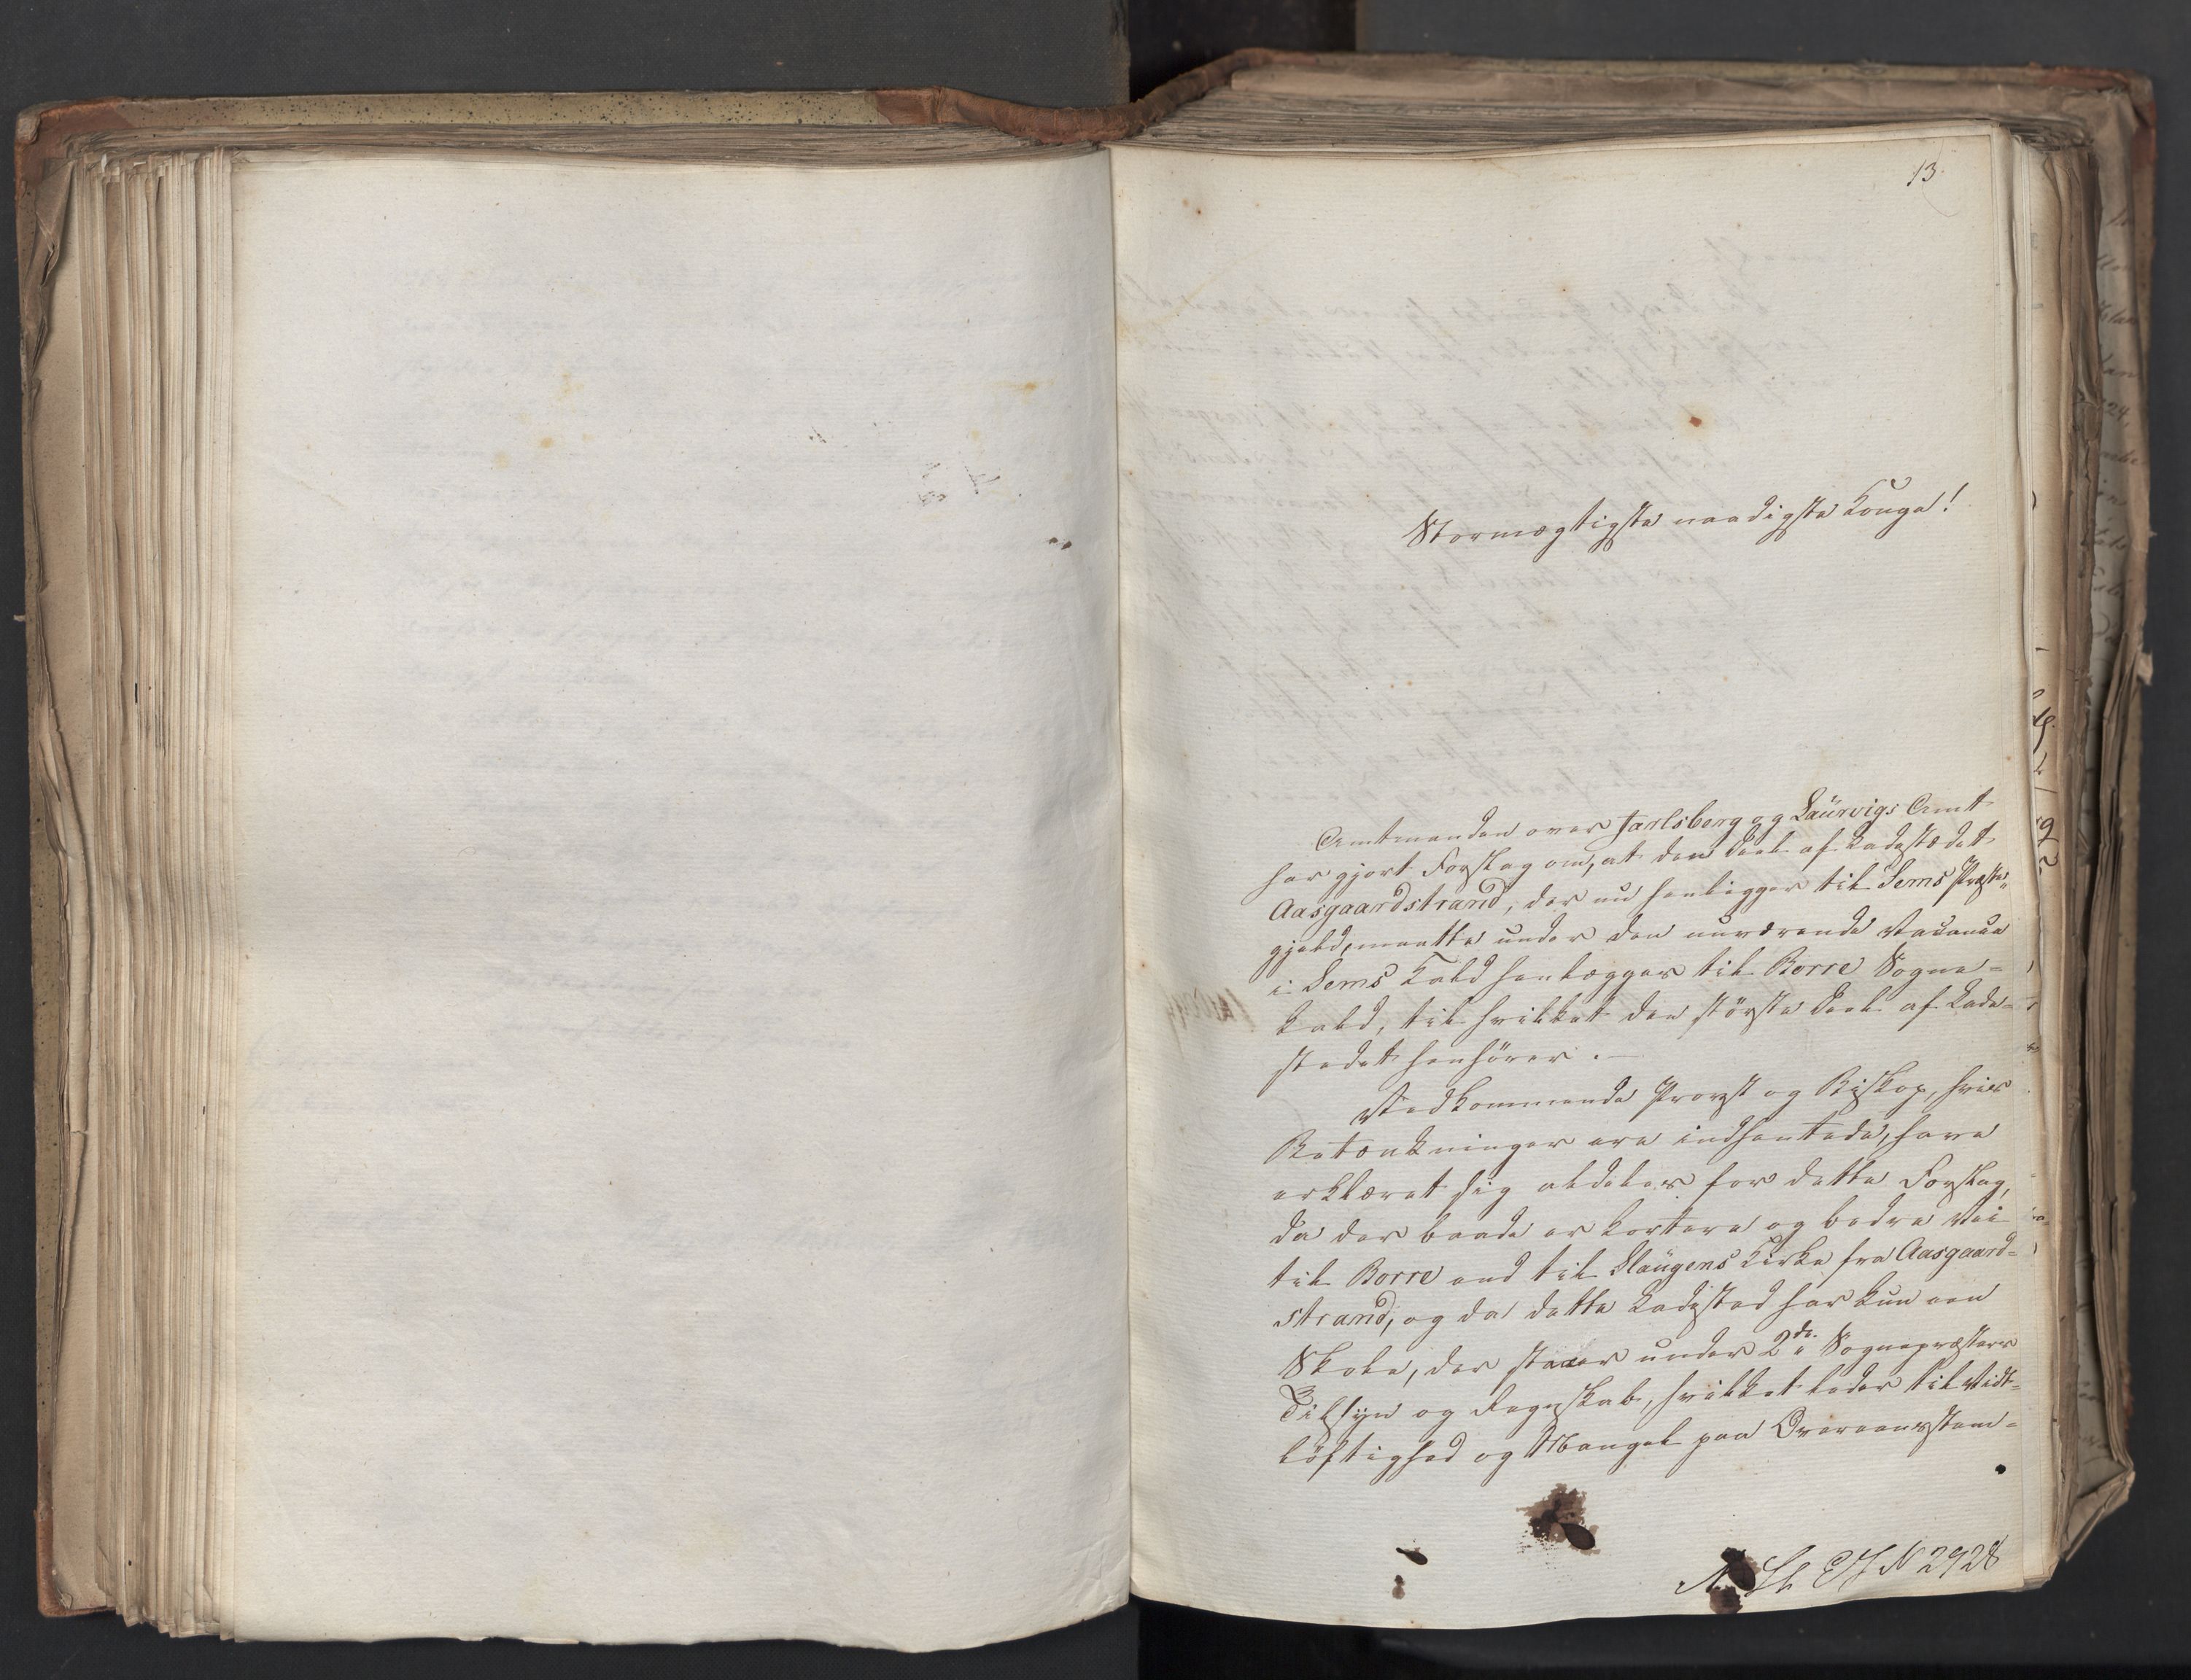 13.
Stormægtigste naadigste Konge!
Amtmanden over Jarlsberg og Laürvigs Amt
har gjort Forslag om, at den Deel af Ladestædet
Aasgaardstrand, der nu henligger til Sems Præste-
gjeld, maatte under den nuværende Vacance
i Sems Kald henlægges til Borre Sogne-
kald, til hvilket den störste Deel af Lade-
stedet henhörer. —
Vedkommende Provst og Biskop, hvis
Betænkninger ere indhentede, have
erklæret sig aldeles for dette Forslag,
da der baade er kortere og bedre Vei
til Borre end til Slaügens Kirke fra Aasgaard-
strand, og da dette Ladested har kun een
Skole, der staaer under 2de Sognepræsters
Tilsyn og Regnskab, hvilket leder til Vidt-
löftighed og Mangel paa Overeensstem-
N 2928